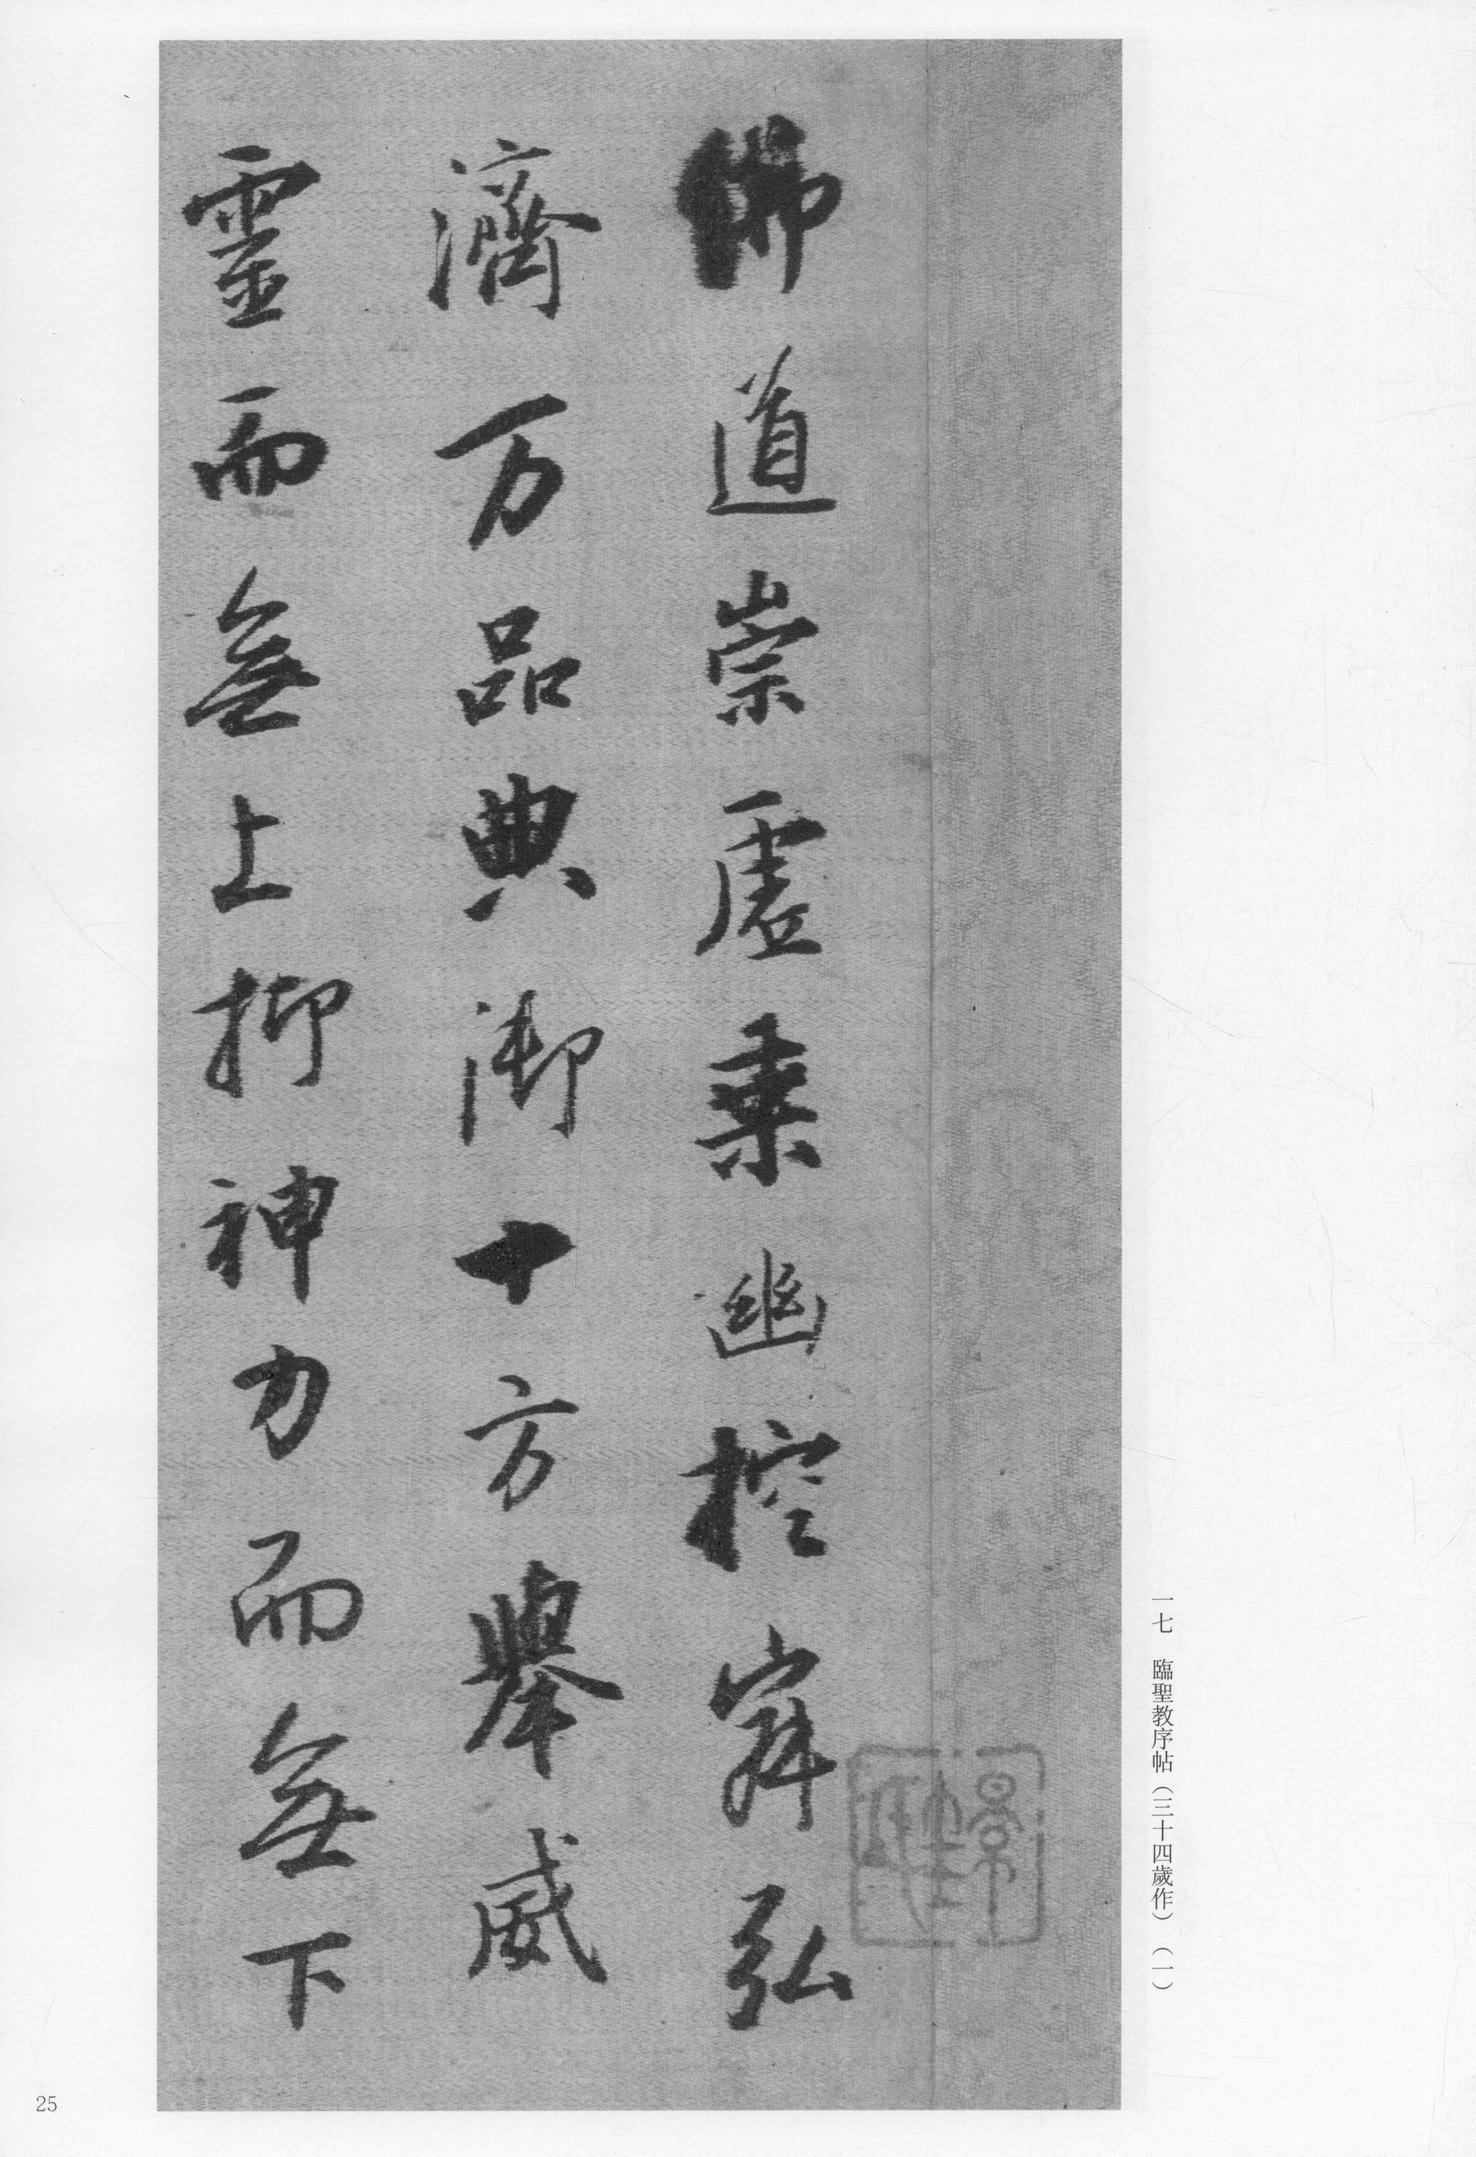 佛道崇虛乗幽控寂弘
濟万品典御十方舉威
靈而無上抑神力而無下
一七　臨聖教序帖（三十四歲作）（一）
25